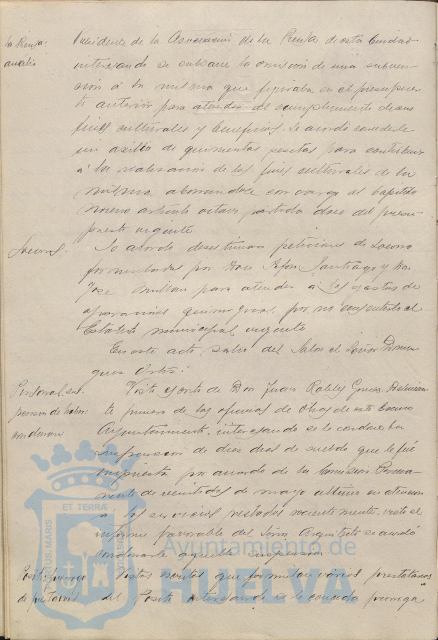 la Prensa:
auxilio
Presidente de la Asociación de la Prensa de esta Ciudad
interesando se subsane la omisión de una subven
ción á la misma que figuraba en el presupues
to anterior para atender al cumplimiento de sus
fines culturales y benéficos. Se acordó concederle
un auxilio de quinientas pesetas para contribuir
á la realización de los fines culturales de la
misma abonandose con cargo al capítulo
noveno artículo octavo partida doce del presu
puesto vigente
Socorros.
Se acordó desestimar peticiones de socorro
formuladas por Don Santiago y Don
José Millan para atender a los gastos de
operaciones quirurgicas, por no consentirlo el
Estatuto municipal vigente
En este acto salió del Salon el Señor Domin
guez Ortiz.
Personal sus
pension de haber
condonar
Visto escrito de Don Juan Robles
de las oficinas de Obras de este Excmo
Ayuntamiento, interesando se le condone la
suspensión de diez dias de sueldo que le fué
impuesta por acuerdo de la Comisión Perma
nente de veintidos de mayo ultimo en atencion
a los servicios prestados recientemente, visto el
informe favorable del Señor Arquitecto se acordó
condonarle aquella suspension
Posito prorroga
de prestamos
Vistos escritos que formulan varios prestatarios
del Posito interesando se le conceda prorroga
ET TERRA
PORTUS MARIS
Ayuntamiento de
HUELVA